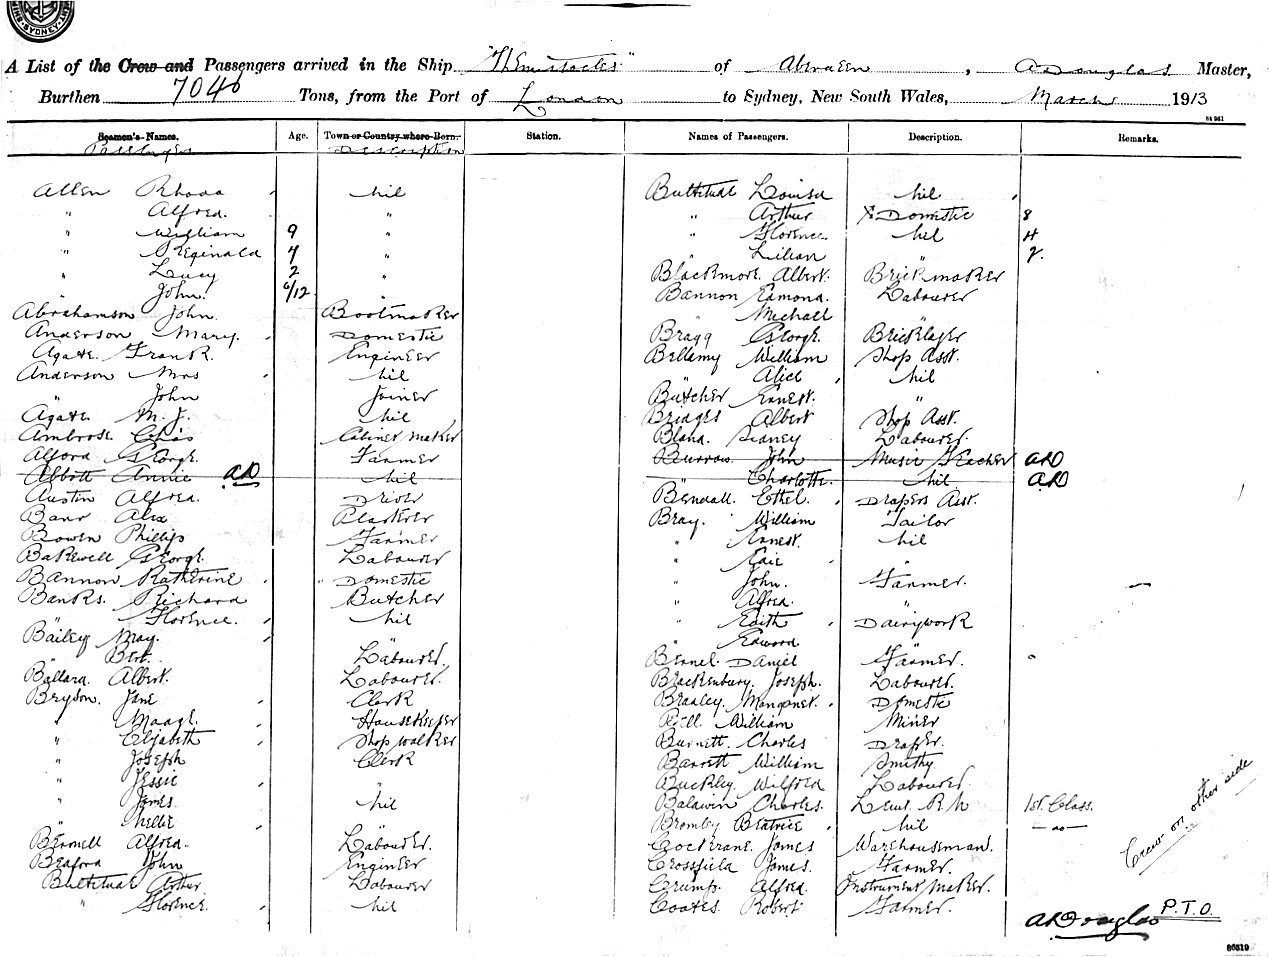 SYDNEY
A List of the Crew and Passengers arrived in the Ship "Themistocles" of Aberdeen, A Douglas Master,
Burthen 7040 Tons, from the Port of London to Sydney, New South Wales, March 1913
84961
Seamen's Names. Age. Town or Country where Born. Station. Names of Passengers. Description. Remarks.
Passengers Description
Allen Rhoda nil Bultitual Louisa nil
" Alfred. " " Arthur X Domestic 8
" William 9 " " Florence nil 4
" Reginald 4 " " Lilian " 2.
" Lucy 2 " Blackmore Albert. Brickmaker
" John. 6/12 " Bannon Edmond. Labourer
Abrahamson John. Bootmaker " Michael "
Anderson Mary. Domestic Bragg George. Bricklayer
Agate. Frank. Engineer Bellamy William Shop Asst.
Anderson Mrs nil " Alice nil
" John Joiner Butcher Ernest. "
Agate M. J. nil Bridges Albert Shop Asst.
Ambrose. Chas Cabinet Maker Bland. Sidney Labourer.
Alford George. Farmer Burrow. John Music Teacher ARD
Abbott Annie ARD nil " Charlotte. nil ARD
Austin Alfred. Driver Bendall. Ethel. Drapers Asst.
Banr Alex Plasterer Bray. William Tailor
Bowen Phillip Farmer " Ernest. nil
Bakewell George. Labourer " "
Bannon Katherine Domestic " John. Farmer.
Banks. Richard Butcher " Alfred. "
" Florence. nil " Edith Dairywork
Bailey May. " " Edward
" Bert. Labourer. Daniel Farmer.
Ballard. Albert. Labourer. Brackenbury. Joseph. Labourer.
Brydon. Jane Clerk Bradley. Margaret. Domestic
" Maage. Housekeeper Bell William Miner
" Elizabeth Shop walker Burnett. Charles Draper.
" Joseph Clerk Barrett William Smithy
" Jessie " Buckley. Wilfred Labourer.
" James. nil Baldwin Charles. Lieut. R.N 1st Class.
" Nellie " Bromby Beatrice nil — do —
Bennell Alfred. Labourer. Cockrane. James Warehouseman.
Bedford John Engineer Crossfield James. Farmer.
Bultitual Arthur Labourer Crump. Alfred. Instrument Maker.
" Florence. nil Coates Robert Farmer.
Crew on other side
ARDouglas P.T.O.
86519